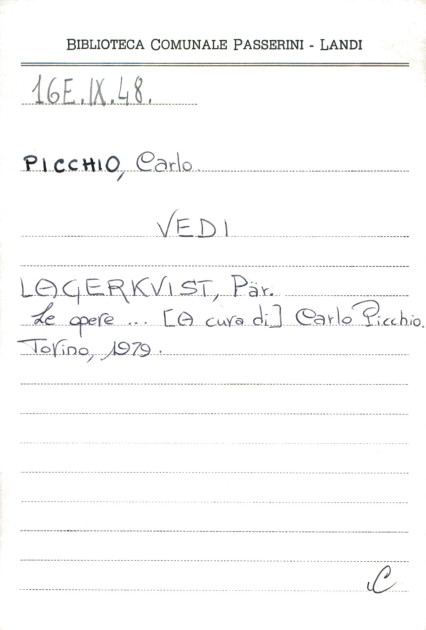 BIBLIOTECA COMUNALE PASSERINI - LANDI
16E.IX.48.
PICCHIO, Carlo.
VEDI
LAGERKVIST, Pär.
Le opere ... [A cura di] Carlo Picchio.
Torino, 1979.
C